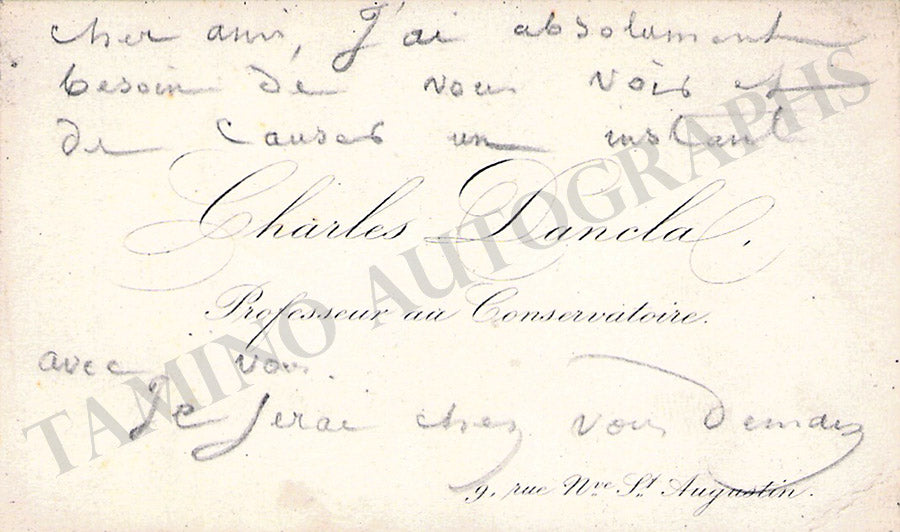 cher ami, J'ai absolument
besoin de vous voir et
de causer un instant
Charles Dancla.
Professeur au Conservatoire.
avec vous.
Je serai chez vous Demain
9, rue Nve St Augustin.
TAMINO AUTOGRAPHS